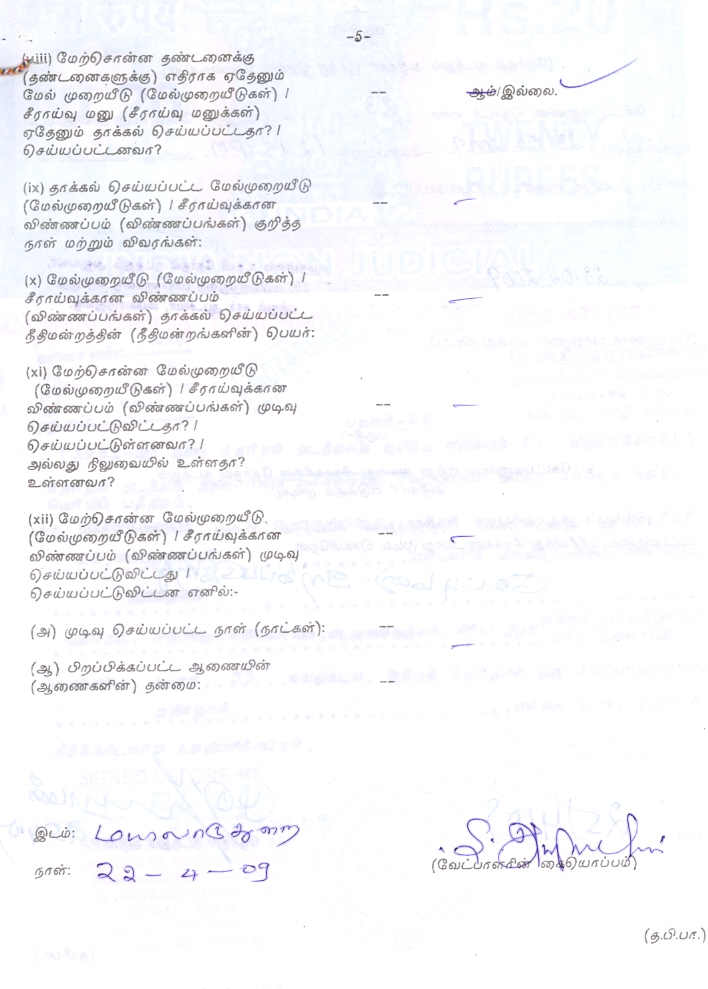 -5-
(viii) மேற்சொன்ன தண்டனைக்கு
(தண்டனைகளுக்கு) எதிராக ஏதேனும்
மேல் முறையீடு (மேல்முறையீடுகள்) / -- ஆம்/இல்லை.
சீராய்வு மனு (சீராய்வு மனுக்கள்)
ஏதேனும் தாக்கல் செய்யப்பட்டதா? /
செய்யப்பட்டனவா?
(ix) தாக்கல் செய்யப்பட்ட மேல்முறையீடு
(மேல்முறையீடுகள்) / சீராய்வுக்கான -- –
விண்ணப்பம் (விண்ணப்பங்கள்) குறித்த
நாள் மற்றும் விவரங்கள்:
(x) மேல்முறையீடு (மேல்முறையீடுகள்) /
சீராய்வுக்கான விண்ணப்பம் -- –
(விண்ணப்பங்கள்) தாக்கல் செய்யப்பட்ட
நீதிமன்றத்தின் (நீதிமன்றங்களின்) பெயர்:
(xi) மேற்சொன்ன மேல்முறையீடு
(மேல்முறையீடுகள்) / சீராய்வுக்கான
விண்ணப்பம் (விண்ணப்பங்கள்) முடிவு -- –
செய்யப்பட்டுவிட்டதா? /
செய்யப்பட்டுள்ளனவா? /
அல்லது நிலுவையில் உள்ளதா?
உள்ளனவா?
(xii) மேற்சொன்ன மேல்முறையீடு.
(மேல்முறையீடுகள்) / சீராய்வுக்கான -- –
விண்ணப்பம் (விண்ணப்பங்கள்) முடிவு
செய்யப்பட்டுவிட்டது /
செய்யப்பட்டுவிட்டன எனில்:-
(அ) முடிவு செய்யப்பட்ட நாள் (நாட்கள்): --
–
(ஆ) பிறப்பிக்கப்பட்ட ஆணையின்
(ஆணைகளின்) தன்மை: --
இடம்: மயிலாடுதுறை
நாள்: 22 - 4 - 09
(வேட்பாளரின் கையொப்பம்)
(த.பி.பா.)